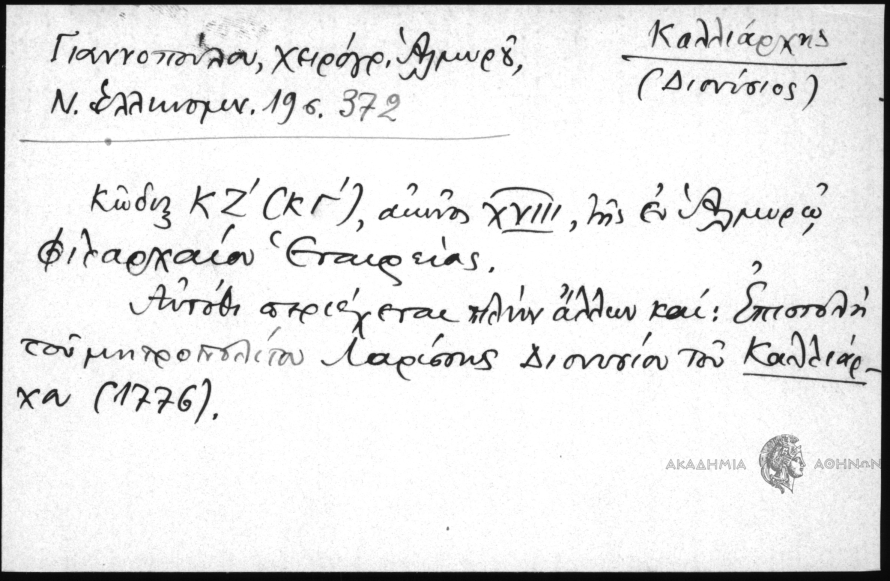 Γιαννοπούλου, χειρόγρ. Ἁλμυροῦ,
Ν. Ἑλληνομν. 19 σ. 372
Καλλιάρχης
(Διονύσιος)
Κῶδιξ ΚΖ΄ (ΚΓ΄), αἰῶνος XVIII, τῆς ἐν Ἁλμυρῷ
Φιλαρχαίου Ἑταιρείας.
Αὐτόθι περιέχεται πλὴν ἄλλων καί: Ἐπιστολὴ
τοῦ μητροπολίτου Λαρίσσης Διονυσίου τοῦ Καλλιάρ-
χα (1776).
ΑΚΑΔΗΜΙΑ ΑΘΗΝΩΝ